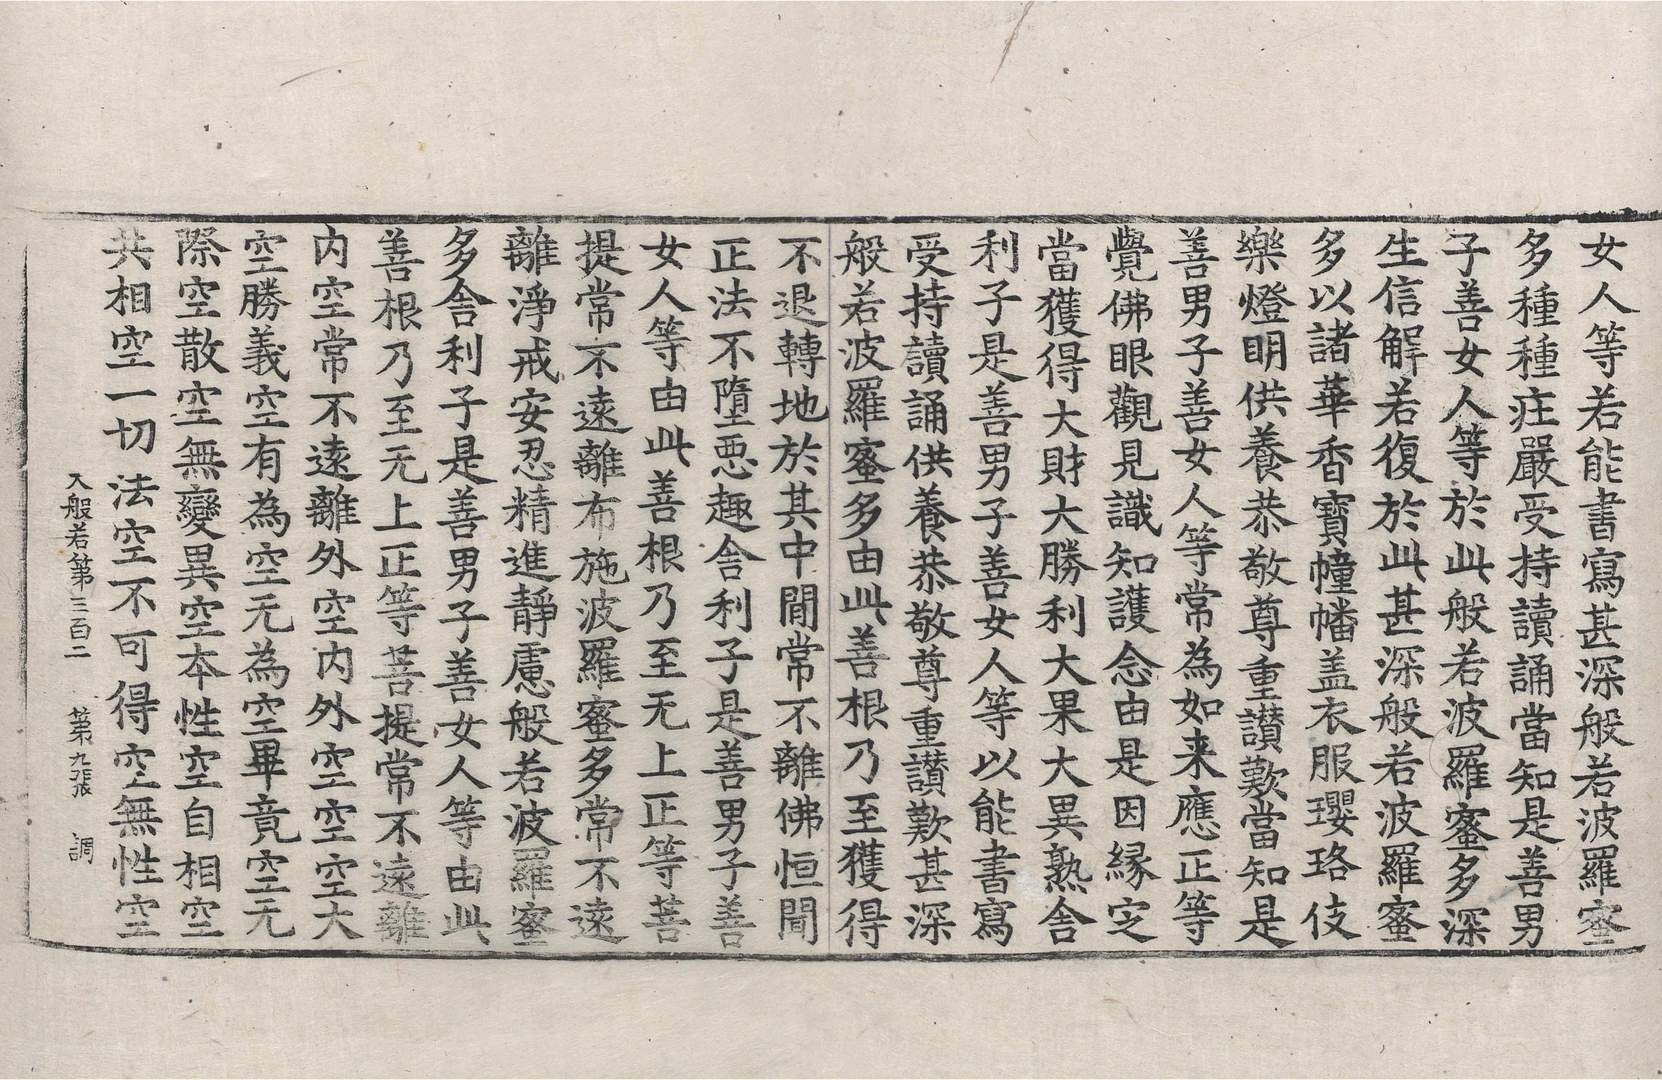 女人等若能書寫甚深般若波羅蜜
多種種庄嚴受持讀誦當知是善男
子善女人等於此般若波羅蜜多深
生信解若復於此甚深般若波羅蜜
多以諸華香寶幢幡盖衣服瓔珞伎
樂燈明供養恭敬尊重讃歎當知是
善男子善女人等常為如来應正等
覺佛眼觀見識知護念由是因緣㝎
當獲得大財大勝利大果大異熟舍
利子是善男子善女人等以能書寫
受持讀誦供養恭敬尊重讃歎甚深
般若波羅蜜多由此善根乃至獲得
不退轉地於其中間常不離佛恒聞
正法不墮惡趣舍利子是善男子善
女人等由此善根乃至无上正等菩
提常不遠離布施波羅蜜多常不遠
離淨戒安忍精進靜慮般若波羅蜜
多舍利子是善男子善女人等由此
善根乃至无上正等菩提常不遠離
内空常不遠離外空内外空空空大
空勝義空有為空无為空畢竟空无
際空散空無變異空本性空自相空
共相空一切法空不可得空無性空
大般若第三百二 第九張 調